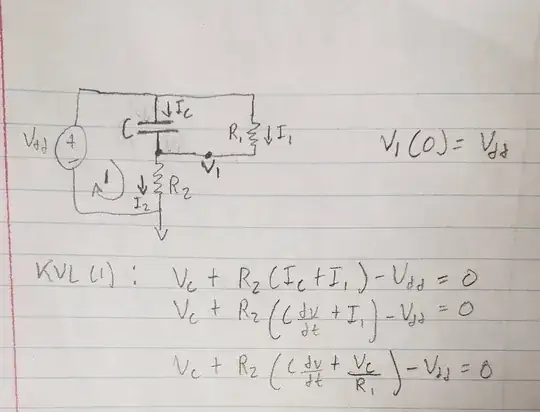 V_dd
+
C
↓ I_c
R_1
↓ I_1
V_1
1
↓ I_2
R_2
V_1(0) = V_dd
KVL(1): V_c + R_2(I_c + I_1) - V_dd = 0
V_c + R_2(C dv/dt + I_1) - V_dd = 0
V_c + R_2(C dv/dt + V_c/R_1) - V_dd = 0